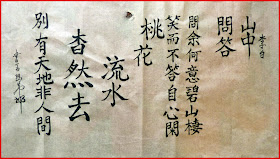 山中
李白
問答
問余何意碧山棲
笑而不答自心閑
桃花
流水
杳然去
別有天地非人間